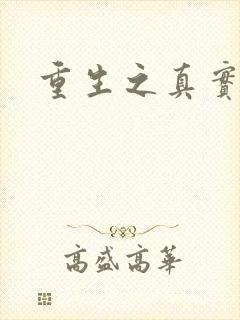 重生之真實
高盛高華